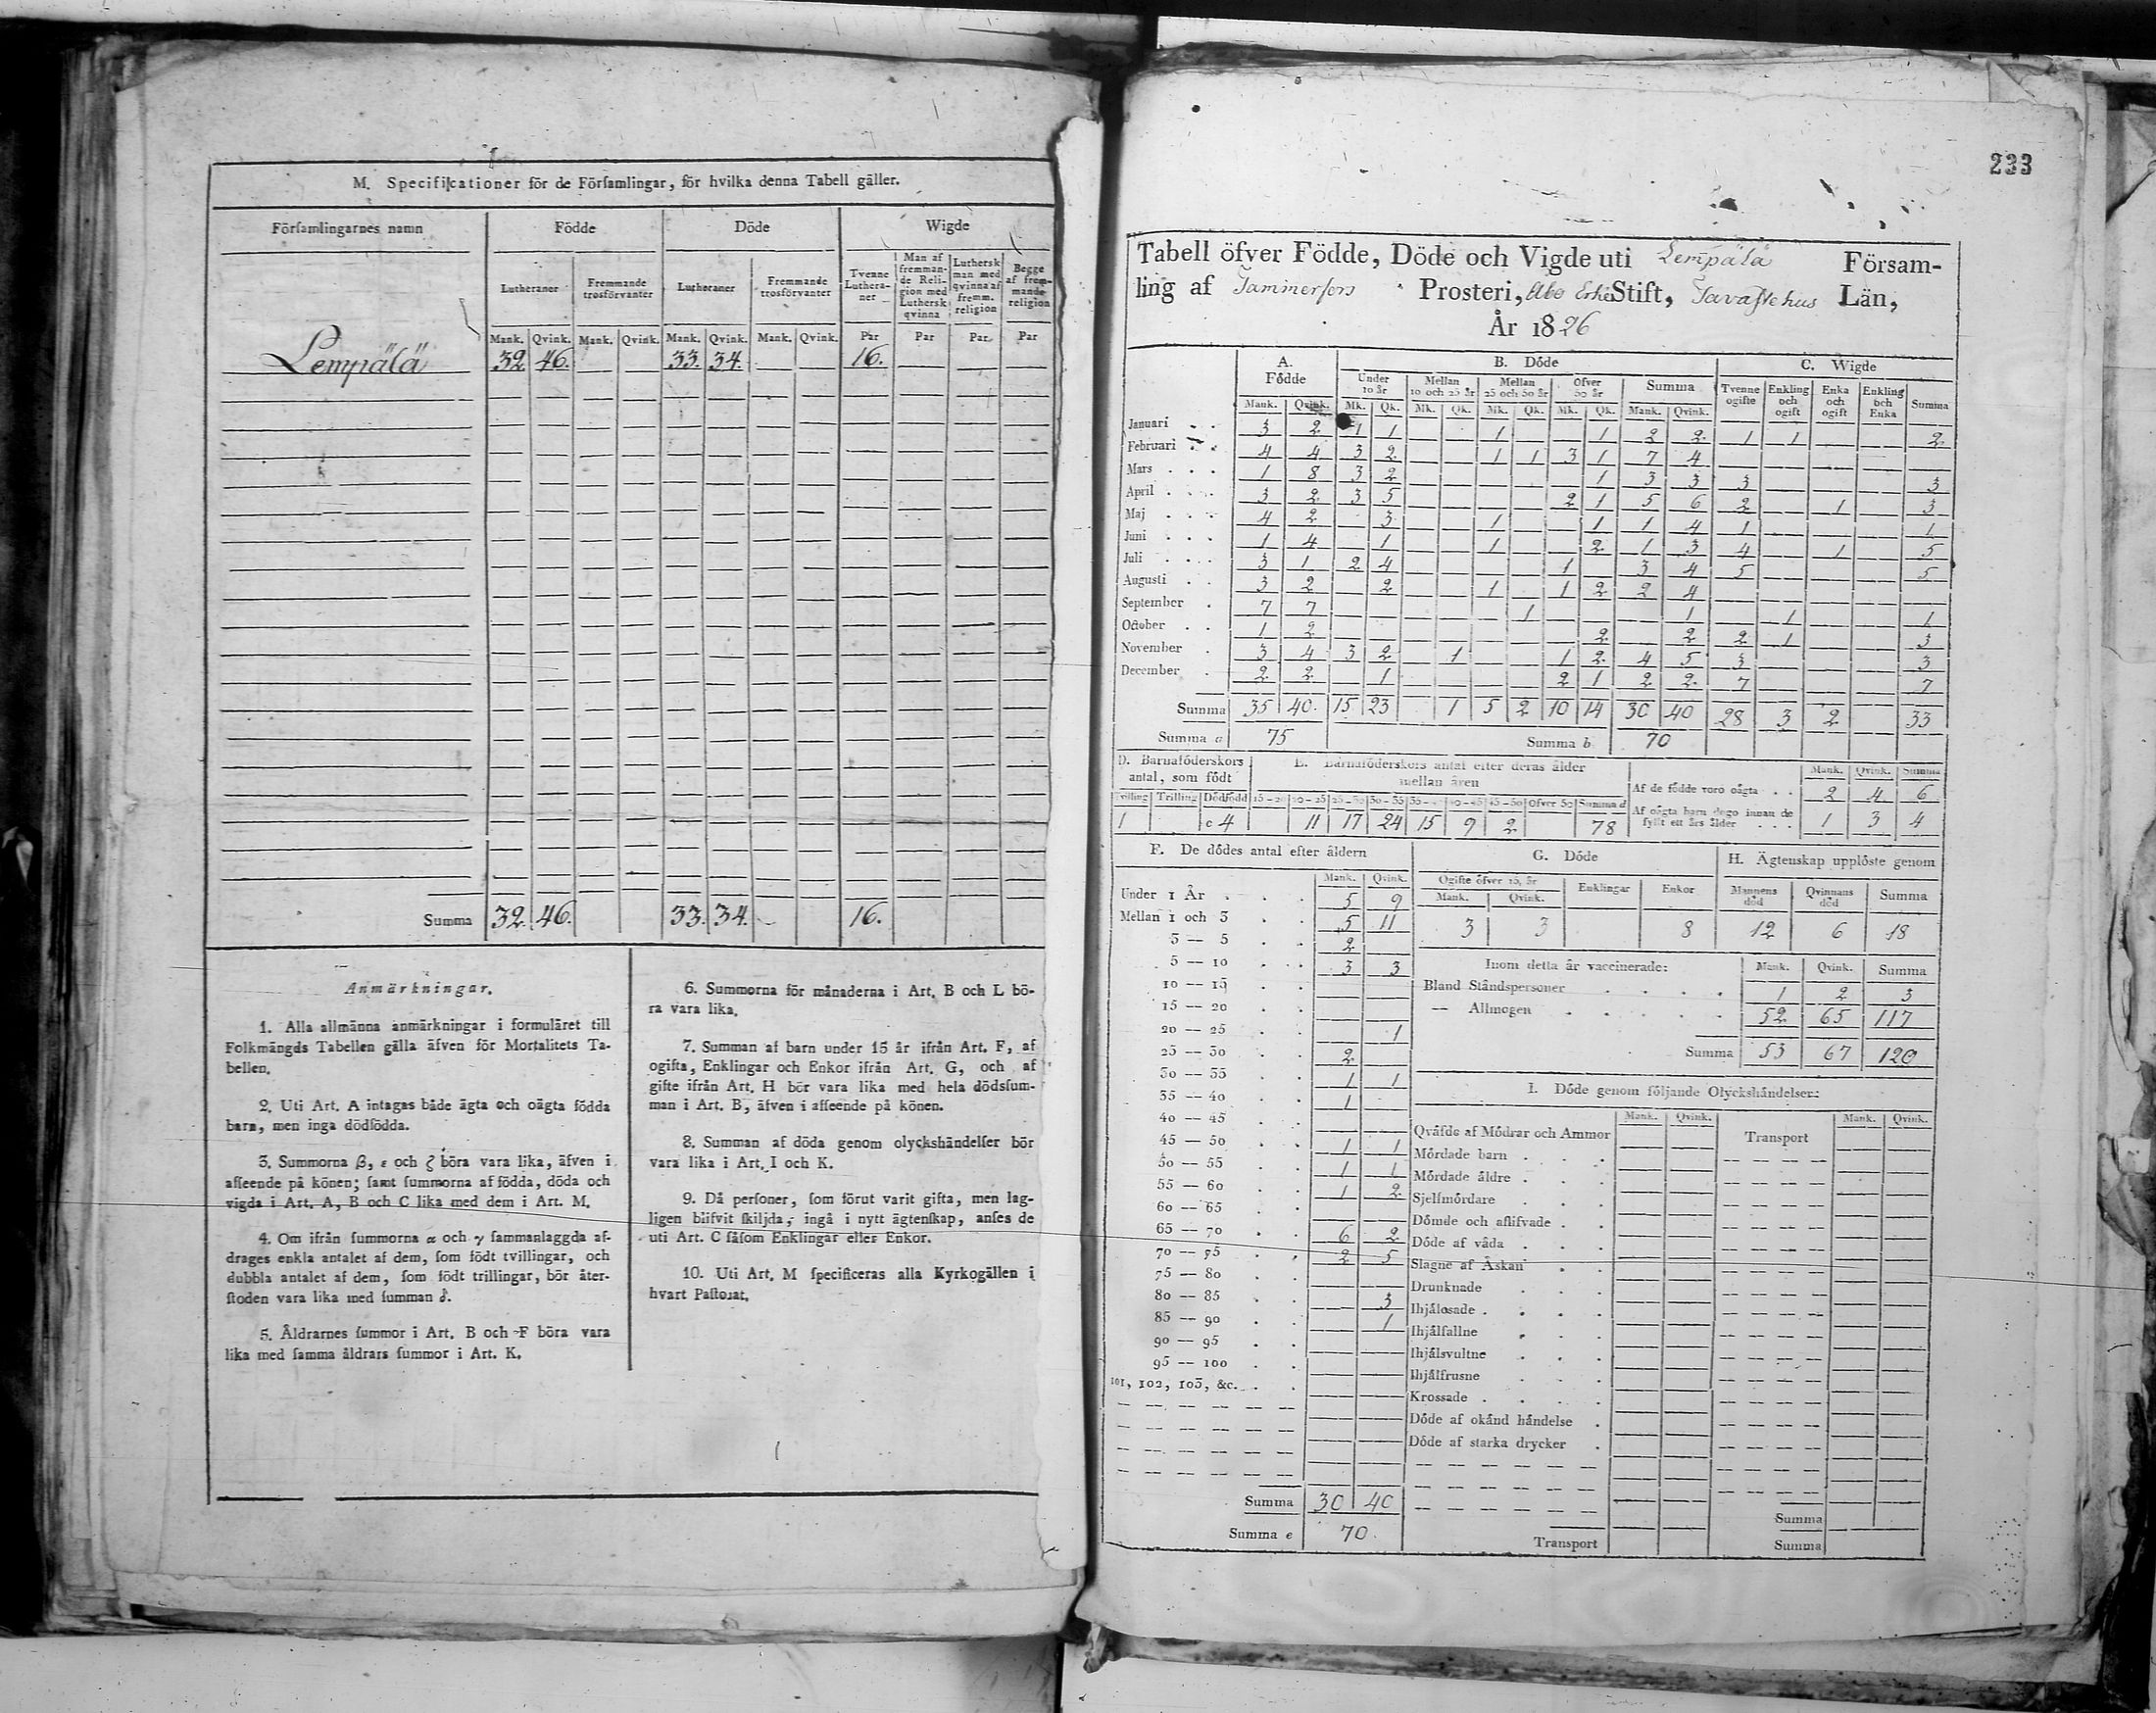 M. Specificationer för de Förſamlingar, för hvilka denna Tabell gäller.
Förſamlingarnes namn | Födde | Döde | Wigde
Lutheraner | Fremmande trosförvanter | Lutheraner | Fremmande trosförvanter | Tvenne Luthera-ner | Man af fremman-de Reli-gion med Luthersk qvinna | Luthersk man med qvinna af fremm. religion | Begge af frem-mande religion
Mank. Qvink. Mank. Qvink. Mank. Qvink. Mank. Qvink. Par Par Par Par
Lempälä 32. 46. 33. 34. 16.
Summa 32. 46. 33. 34. 16.
Anmärkningar.
1. Alla allmänna anmärkningar i formuläret till
Folkmängds Tabellen gälla äfven för Mortalitets Ta-
bellen.
2. Uti Art. A intagas både ägta och oägta födda
barn, men inga dödfödda.
3. Summorna β, ε och ζ böra vara lika, äfven i
affeende på könen; ſamt ſummorna af födda, döda och
vigda i Art. A, B och C lika med dem i Art. M.
4. Om ifrån ſummorna α och γ ſammanlaggda af-
drages enkla antalet af dem, ſom födt tvillingar, och
dubbla antalet af dem, ſom födt trillingar, bör åter-
ſtoden vara lika med ſumman δ.
5. Åldrarnes ſummor i Art. B och F böra vara
lika med ſamma åldrars ſummor i Art. K.
6. Summorna för månaderna i Art. B och L bö-
ra vara lika.
7. Summan af barn under 15 år ifrån Art. F, af
ogifta, Enklingar och Enkor ifrån Art. G, och af
gifte ifrån Art. H bör vara lika med hela dödsſum-
man i Art. B, äfven i affeende på könen.
8. Summan af döda genom olyckshändelſer bör
vara lika i Art. I och K.
9. Då perſoner, ſom förut varit gifta, men lag-
ligen blifvit ſkiljda, ingå i nytt ägtenſkap, anſes de
uti Art. C ſåſom Enklingar eller Enkor.
10. Uti Art. M ſpecificeras alla Kyrkogällen i
hvart Paſtorat.
233
Tabell öfver Födde, Döde och Vigde uti Lempälä Försam-
ling af Tammerfors Prosteri, Åbo Erke Stift, Tavaſtehus Län,
År 1826
A. Födde | B. Döde | C. Wigde
Under 10 år | Mellan 10 och 25 år | Mellan 25 och 50 år | Öfver 50 år | Summa | Tvenne ogifte | Enkling och ogift | Enka och ogift | Enkling och Enka | Summa
Mank. Qvink. Mk. Qk. Mk. Qk. Mk. Qk. Mk. Qk. Mank. Qvink.
Januari 3 2 1 1 1 1 2 2 1 1 2
Februari 4 4 3 2 1 1 3 1 7 4
Mars 1 8 3 2 1 3 3 3 3
April 3 2 3 5 2 1 5 6 2 1 3
Maj 4 2 3 1 1 1 4 1 1
Juni 1 4 1 1 2 1 3 4 1 5
Juli 3 1 2 4 1 3 4 5 5
Augusti 3 2 2 1 1 2 2 4
September 7 7 1 1 1 1
October 1 2 2 2 2 1 3
November 3 4 3 2 1 1 2 4 5 3 3
December 2 2 1 2 1 2 2 7 7
Summa 35 40 15 23 1 5 2 10 14 30 40 28 3 2 33
Summa a 75 Summa b 70
D. Barnaföderskors antal, som födt
E. Barnaföderskors antal efter deras ålder mellan åren
Tvilling Trilling Dödfödd 15-20 20-25 25-30 30-35 35-40 40-45 45-50 Öfver 50 Summa d
1 c 4 11 17 24 15 9 2 78
Mank. Qvink. Summa
Af de födde voro oägta 2 4 6
Af oägta barn dogo innan de fyllt ett års ålder 1 3 4
F. De dödes antal efter åldern
Mank. Qvink.
Under 1 År 5 9
Mellan 1 och 3 5 11
3 — 5 2
5 — 10 3 3
10 — 15
15 — 20
20 — 25 1
25 — 30 2
30 — 35 1 1
35 — 40 1
40 — 45
45 — 50 1 1
50 — 55 1 1
55 — 60 1 2
60 — 65
65 — 70 6 2
70 — 75 2 5
75 — 80
80 — 85 3
85 — 90 1
90 — 95
95 — 100
101, 102, 103, &c.
Summa 30 40
Summa e 70.
G. Döde
Ogifte öfver 15, år | Enklingar | Enkor
Mank. Qvink.
3 3 8
H. Ägtenskap upplöste genom
Mannens död | Qvinnans död | Summa
12 6 18
Inom detta år vaccinerade: Mank. Qvink. Summa
Bland Ståndspersoner 1 2 3
— Allmogen 52 65 117
Summa 53 67 120
I. Döde genom följande Olyckshändelser:
Mank. Qvink. Mank. Qvink.
Qväfde af Mödrar och Ammor Transport
Mördade barn
Mördade äldre
Sjelfmördare
Dömde och aflifvade
Döde af våda
Slagne af Åskan
Drunknade
Ihjälosade
Ihjälfallne
Ihjälsvultne
Ihjälfrusne
Krossade
Döde af okänd händelse
Döde af starka drycker
Summa
Transport Summa